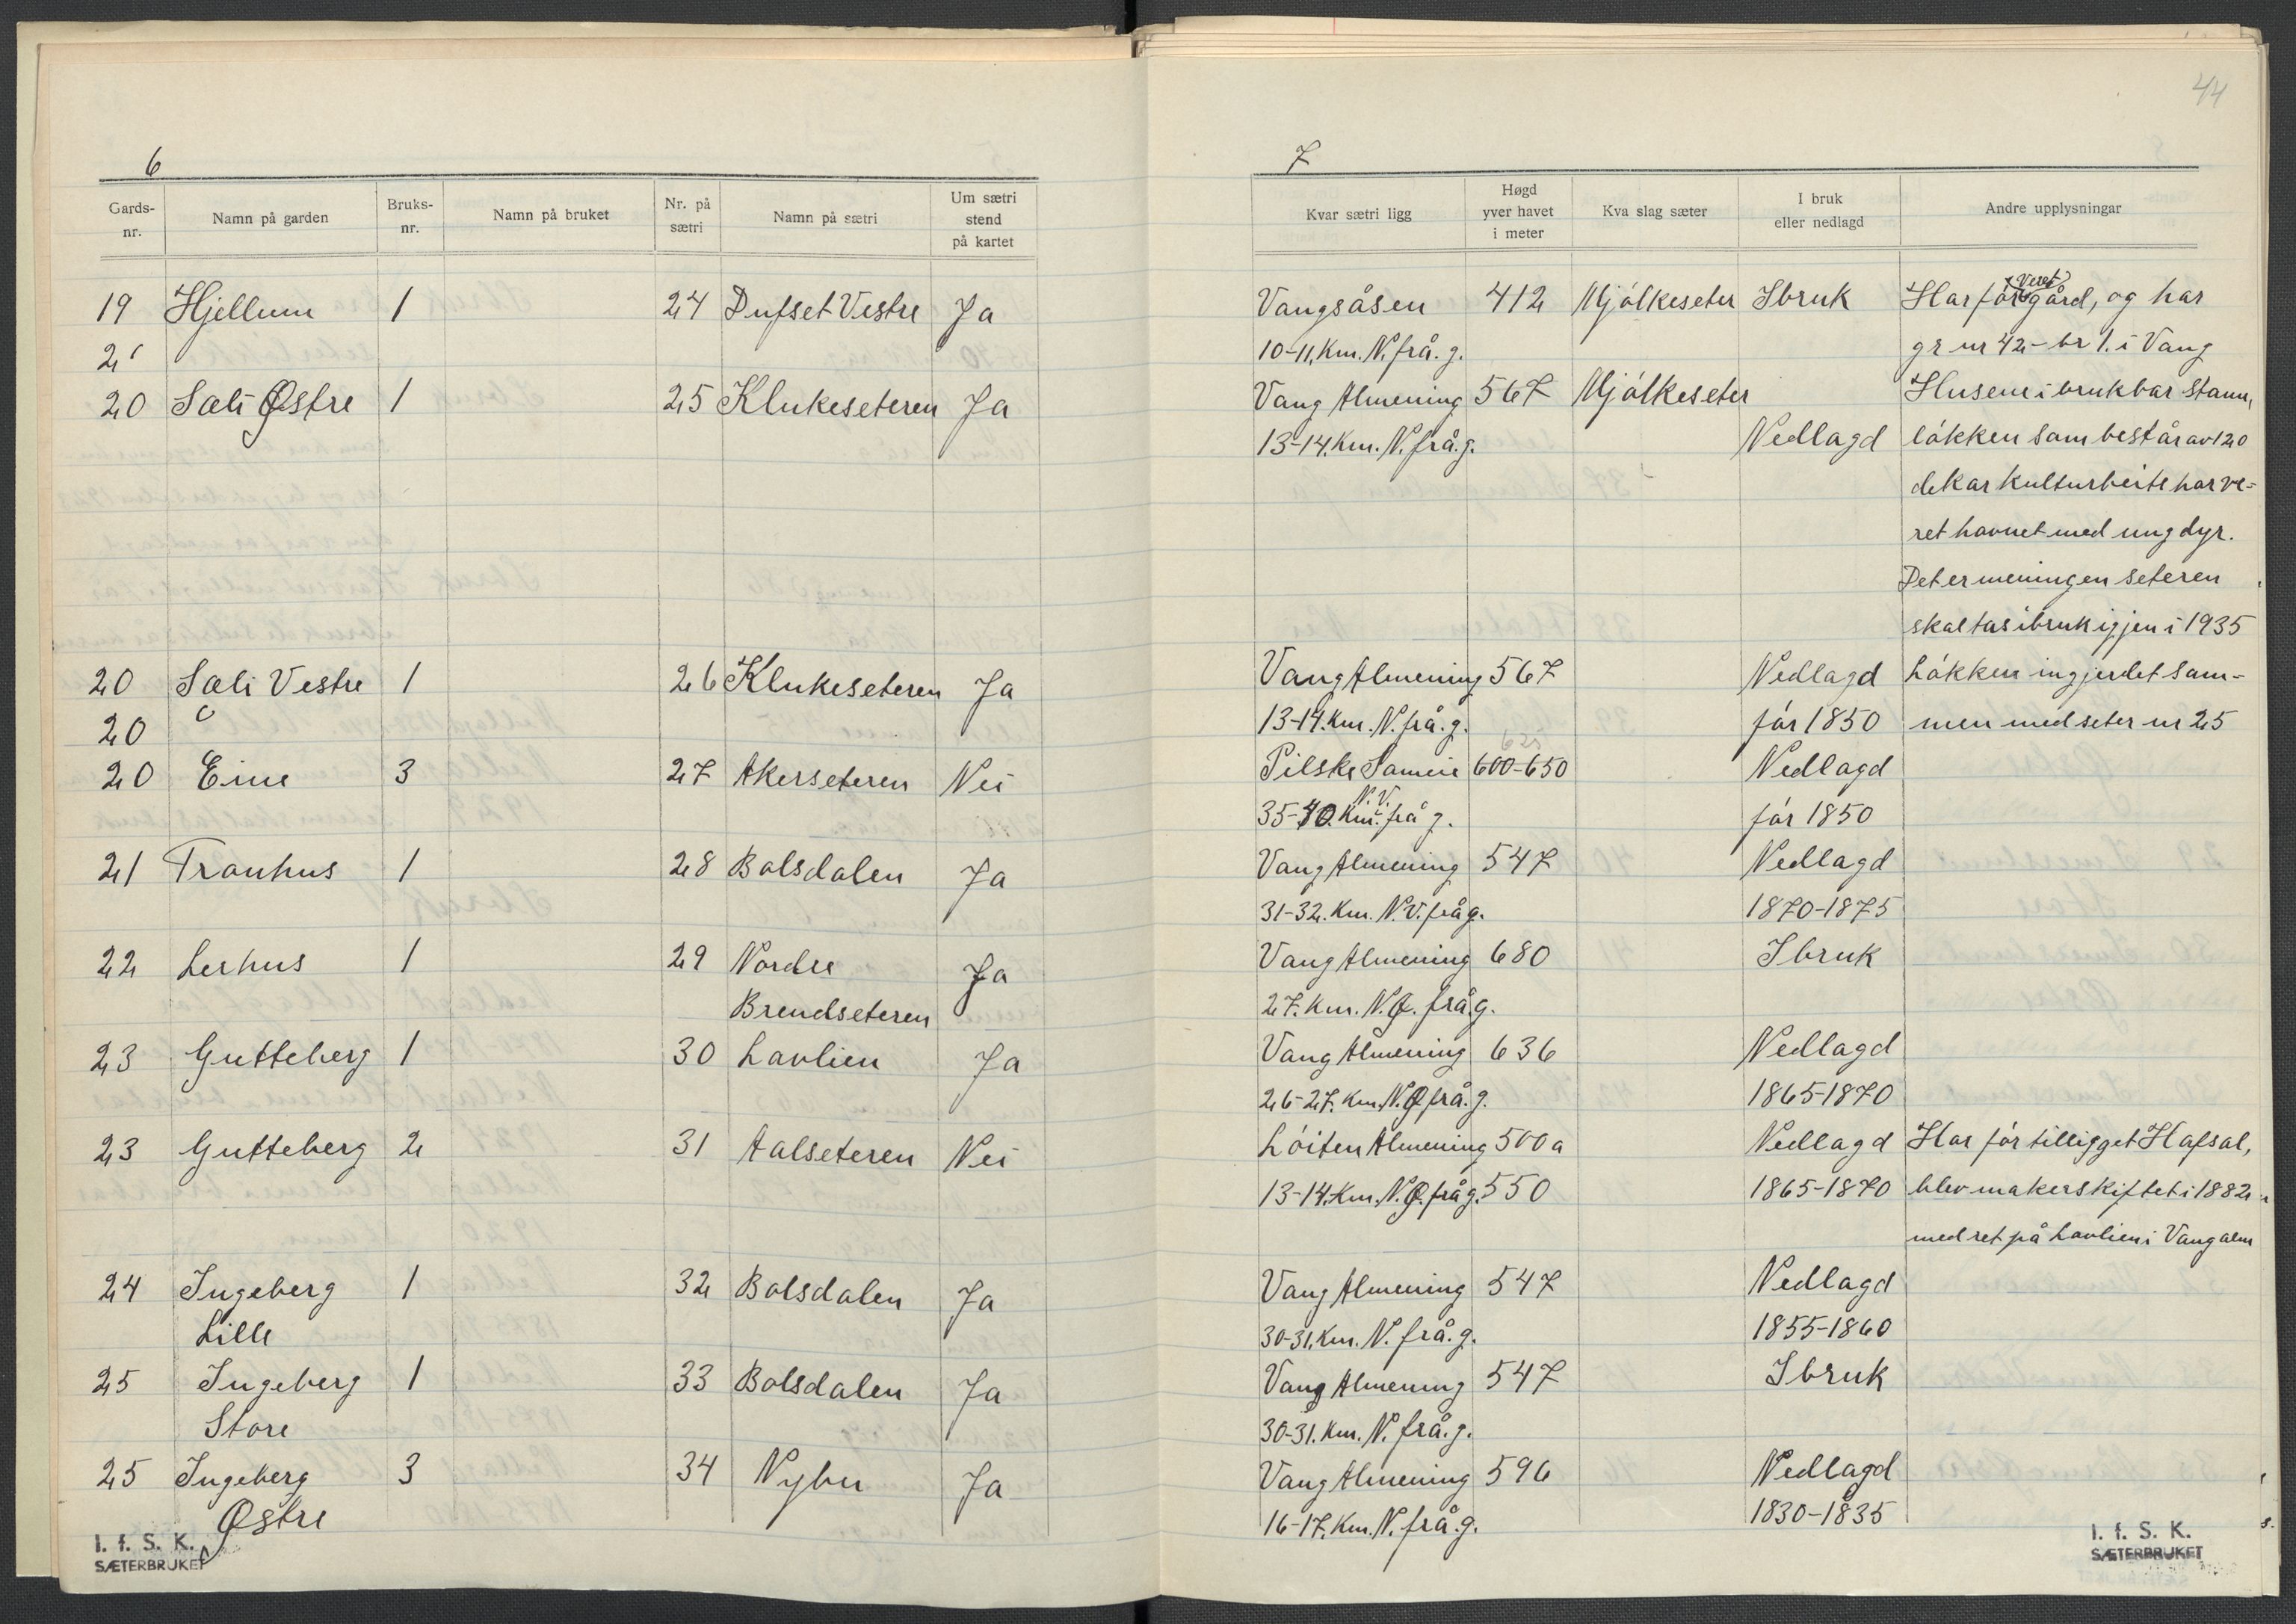 6
Gards-nr. Namn på garden Bruks-nr. Namn på bruket Nr. på sætri Namn på sætri Um sætri stend på kartet
19 Hjellum 1 24 Dufset Vestre Ja
20 Sæli Østre 1 25 Klukeseteren Ja
20 Sæli Vestre 1 26 Klukeseteren Ja
20
20 Eine 3 27 Akerseteren Nei
21 Tranhus 1 28 Bolsdalen Ja
22 Lerhus 1 29 Nordre Ja
Brendseteren
23 Gutteberg 1 30 Lavlien Ja
23 Gutteberg 2 31 Aalseteren Nei
24 Ingeberg 1 32 Bolsdalen Ja
Lille
25 Ingeberg 1 33 Bolsdalen Ja
Store
25 Ingeberg 3 34 Nybu Ja
Østre
I. f. S. K.
SÆTERBRUKET
44
7
Kvar sætri ligg Høgd yver havet i meter Kva slag sæter I bruk eller nedlagd Andre upplysningar
Vangsåsen 412 Mjólkeseter Ibruk Har fór veret gård, og har
10-11. Km. N. frå. g. gr nr 42 - br 1. i Vang
Vang Almening 567 Mjólkeseter Husene i brukbar stann,
13-14. Km. N. frå. g. Nedlagd lókken som består av 120
dekar kulturbeite har ve-
ret havnet med ungdyr.
Det er meningen seteren
skal tas ibruk igjen i 1935
Vang Almening 567 Nedlagd Lókken ingjerdet sam-
13-14. Km. N. frå. g. fór 1850 men med seter nr 25
625
Pilske Sameie 600-650 Nedlagd
35-40. Km. N.V. frå g. fór 1850
Vang Almening 547 Nedlagd
31-32. Km. N.V. frå g. 1870-1875
Vang Almening 680 Ibruk
27. Km. N.Ø. frå g.
Vang Almening 636 Nedlagd
26-27. Km. N.Ø frå. g. 1865-1870
Lóiten Almening 500 a Nedlagd Har fór tilligget Hafsal,
13-14. Km. N.Ø. frå g. 550 1865-1870 blev makerskiftet i 1882
med ret på Lavlien i Vang alm
Vang Almening 547 Nedlagd
30-31. Km. N. frå. g. 1855-1860
Vang Almening 547 Ibruk
30-31. Km. N. frå. g.
Vang Almening 596 Nedlagd
16-17. Km. N. frå. g. 1830-1835
I. f. S. K.
SÆTERBRUKET